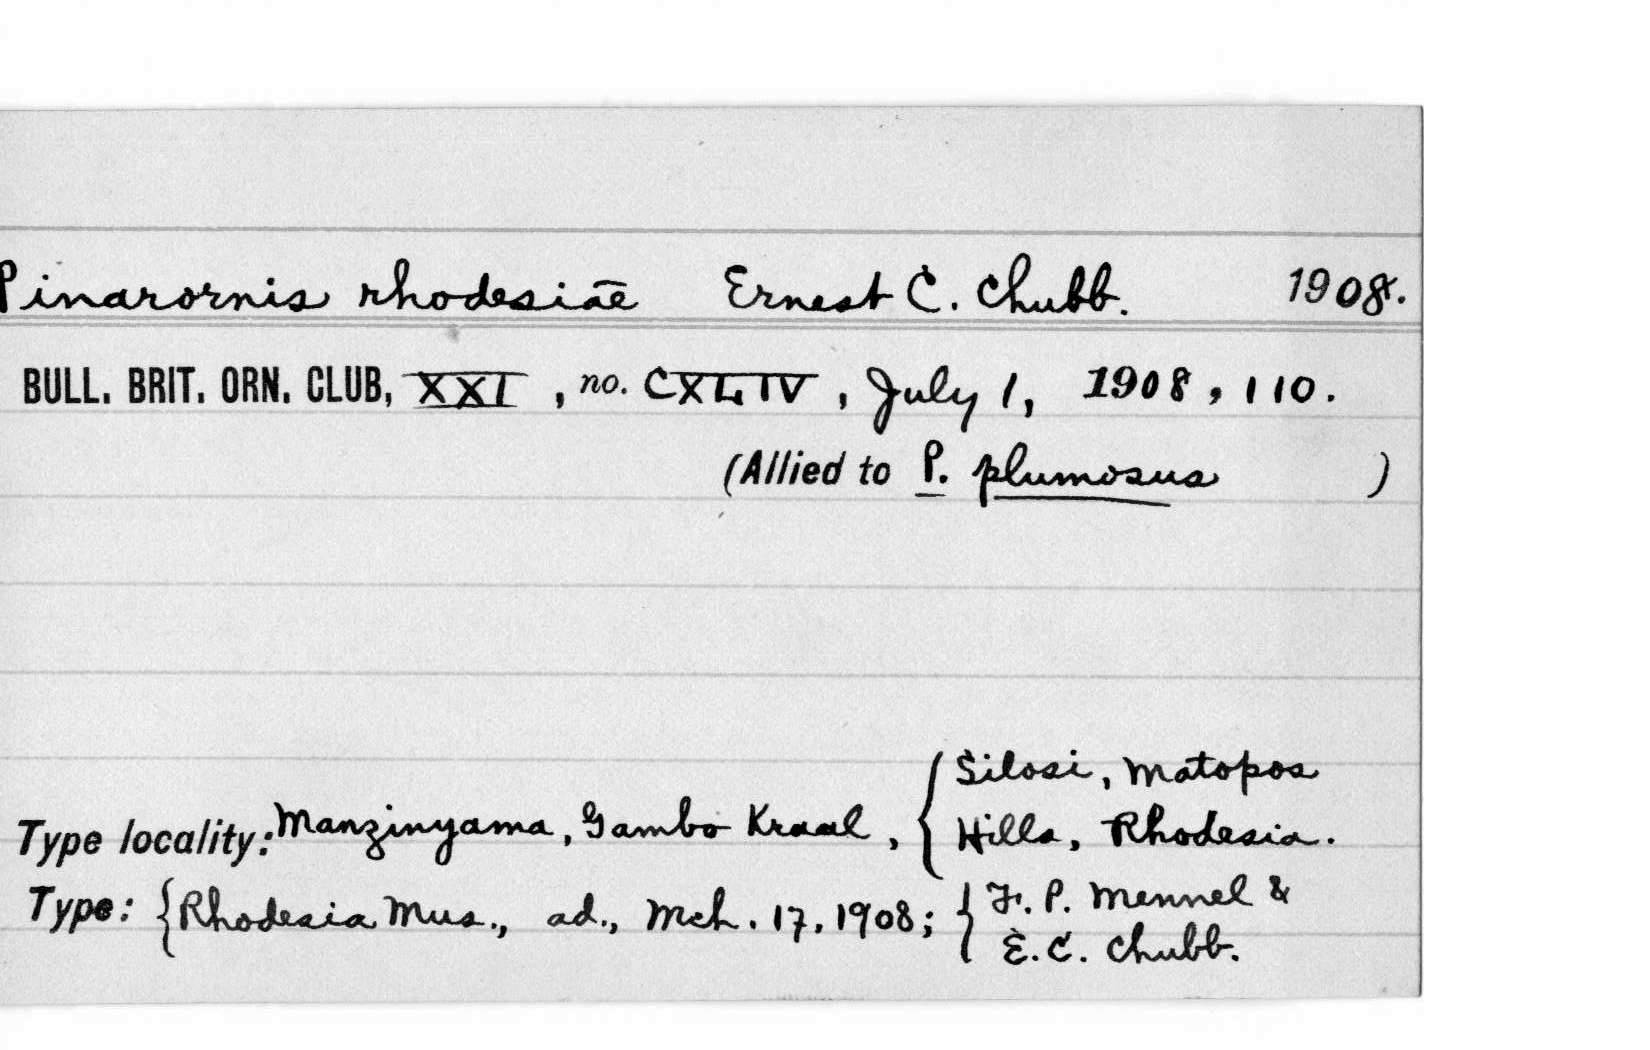 Pinarornis rhodesiae Ernest C. Chubb. 1908.
BULL. BRIT. ORN. CLUB, XXI, no. CXLIV, July 1, 1908, 110.
(Allied to P. plumosus )
Type locality: Manzinyama, Gambo Kraal, { Silosi, Matopos
Hills, Rhodesia.
Type: { Rhodesia Mus., ad., Mch. 17, 1908; } F. P. Mennel &
E. C. Chubb.